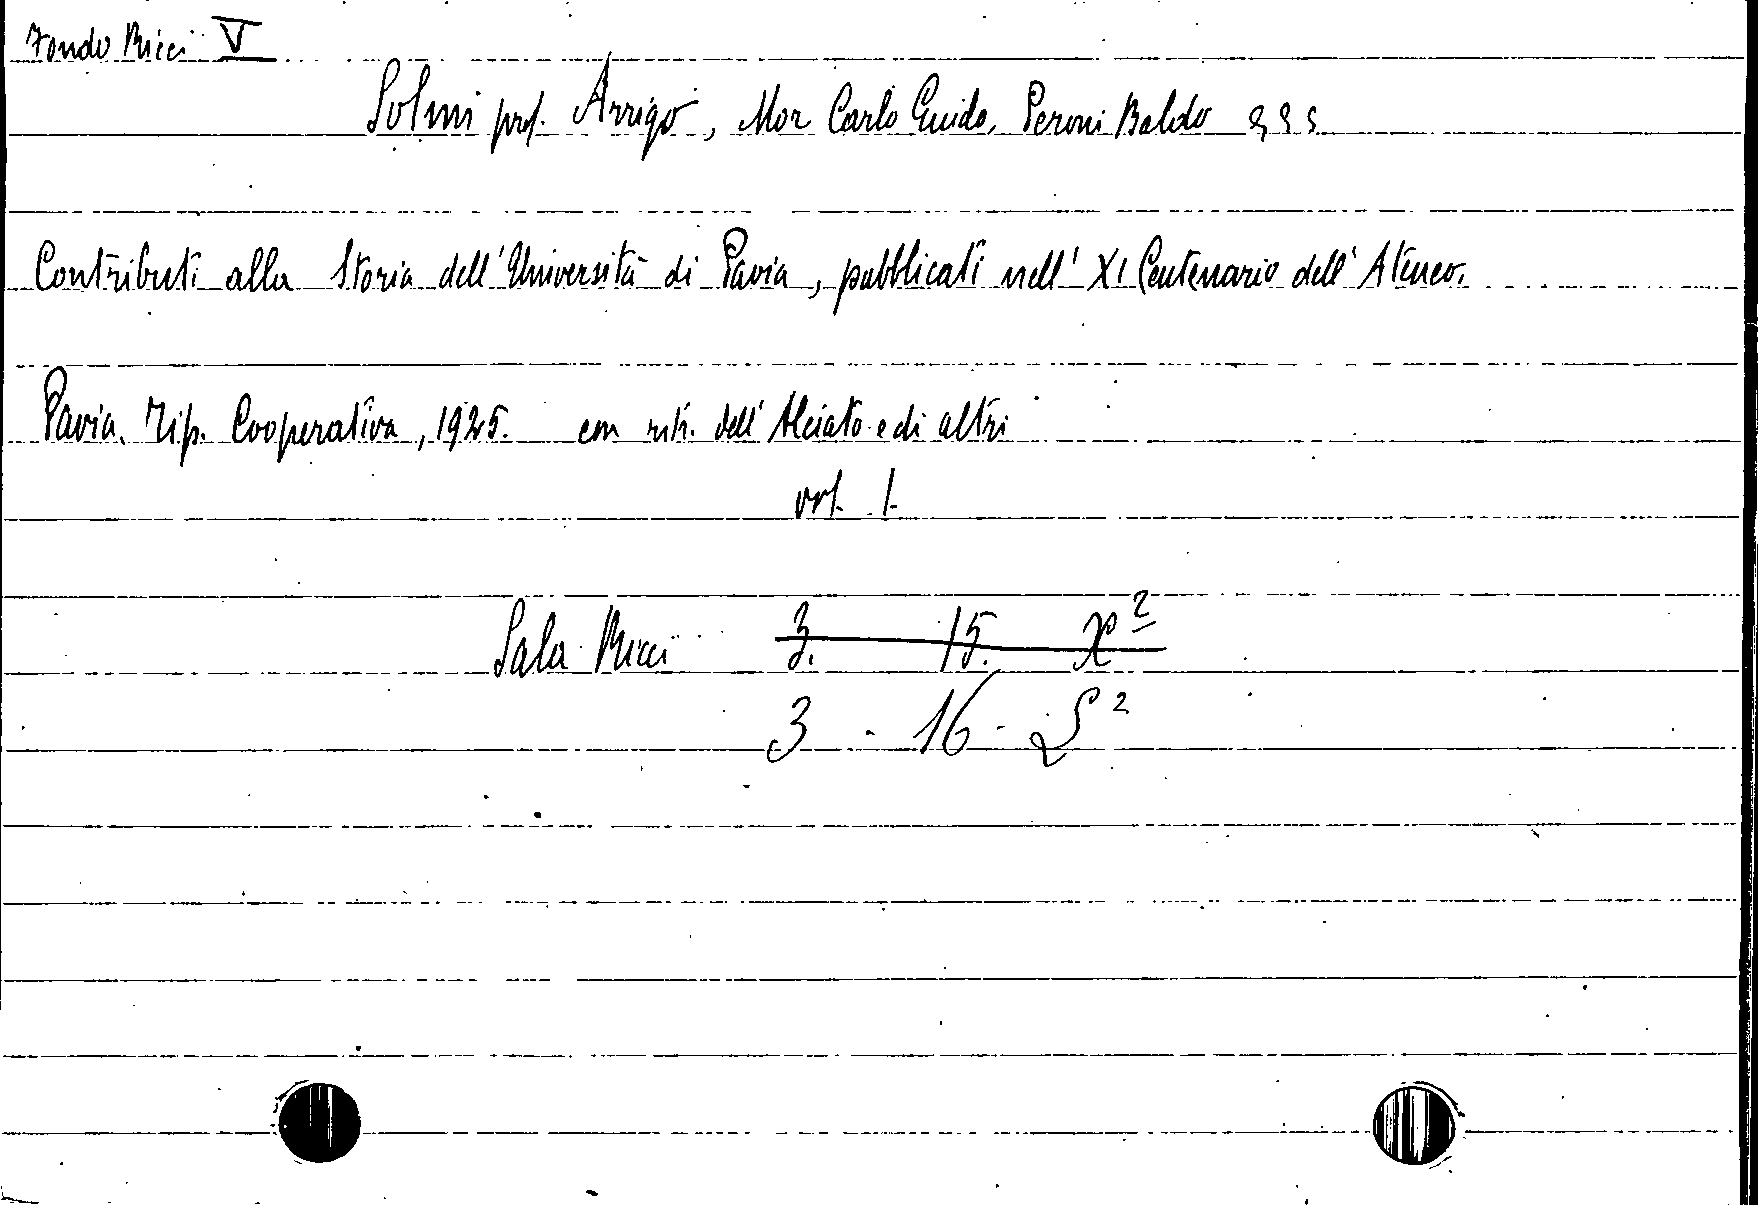 Fondo Ricci V
Solmi prof. Arrigo, Mor Carlo Guido, Peroni Baldo
Contributi alla Storia dell'Università di Pavia, pubblicati nell' XI Centenario dell'Ateneo.
Pavia. Tip. Cooperativa, 1925. con ritr. dell'Alciato e di altri
vol. 1.
Sala Ricci 3. 15. X²
3 - 16 -